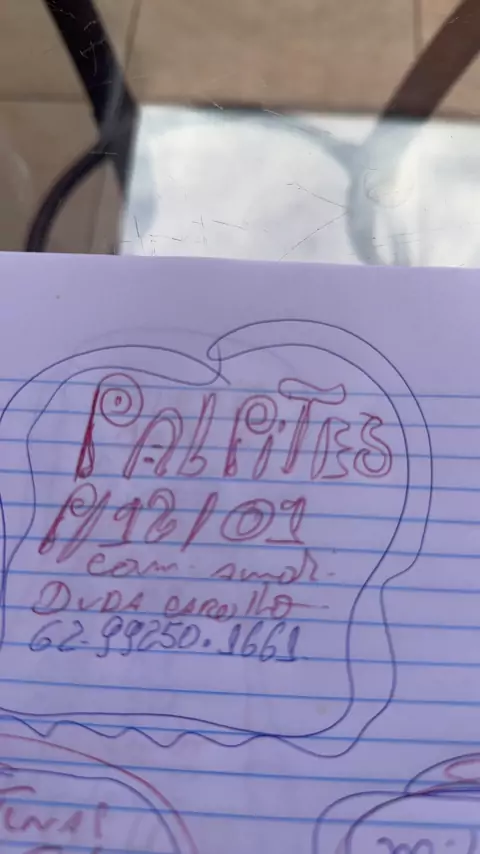 PALPITES
P/12/01
com amor.
DUDA CARVILHO
62-99250.1661